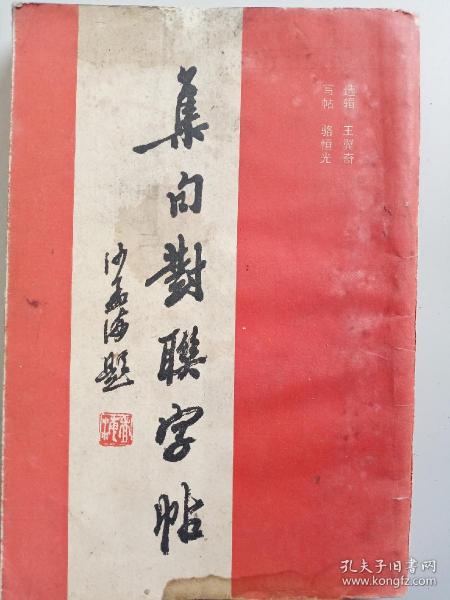 选辑 王翼奇
写帖 骆恒光
集句對聯字帖
沙孟海題
孔夫子旧书网
www.kongfz.com